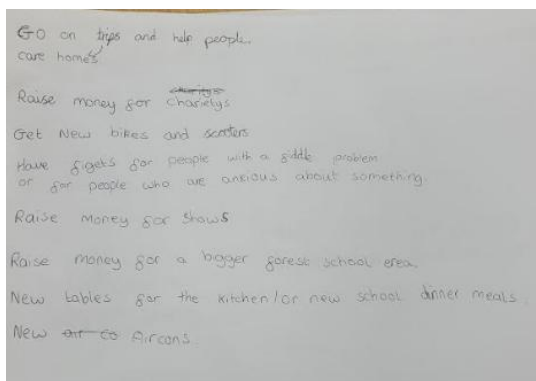 GO on trips and help people.
care homes
Raise money for charielys
Get New bikes and scooters
Have figets for people with a fiddle problem
or for people who are anxious about something.
Raise money for shows
Raise money for a bigger forest school erea.
New tables for the kitchen/or new school dinner meals.
New air co Aircons.